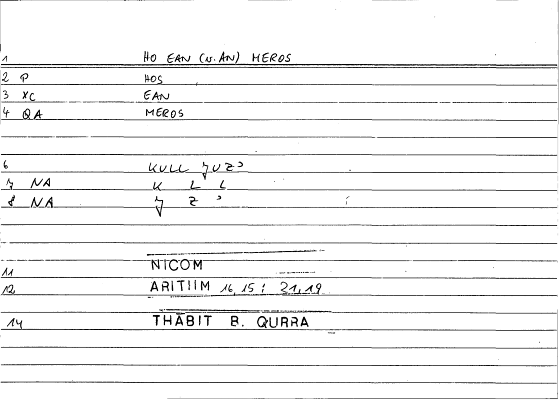 1 HO EAN (u. AN) MEROS
2 P HOS
3 XC EAN
4 QA MEROS
6 KULL ǦUZʾ
7 NA K L L
8 NA Ǧ Z ʾ
11 NICOM
12 ARITIIM 16,15; 21,19
14 THĀBIT B. QURRA